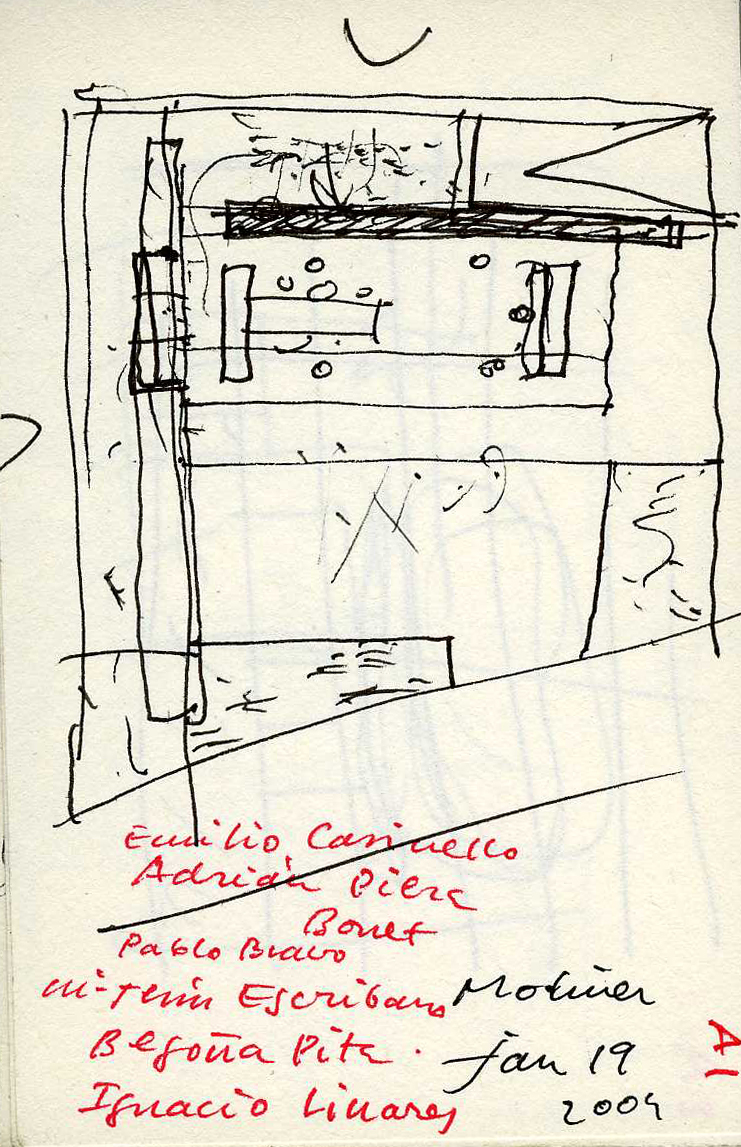 Emilio Casinello
Adrián Piera
Bonet
Pablo Bravo
Escribano Moliner
Begoña Pita.
Jan 19
Ignacio Linares
2004
A1